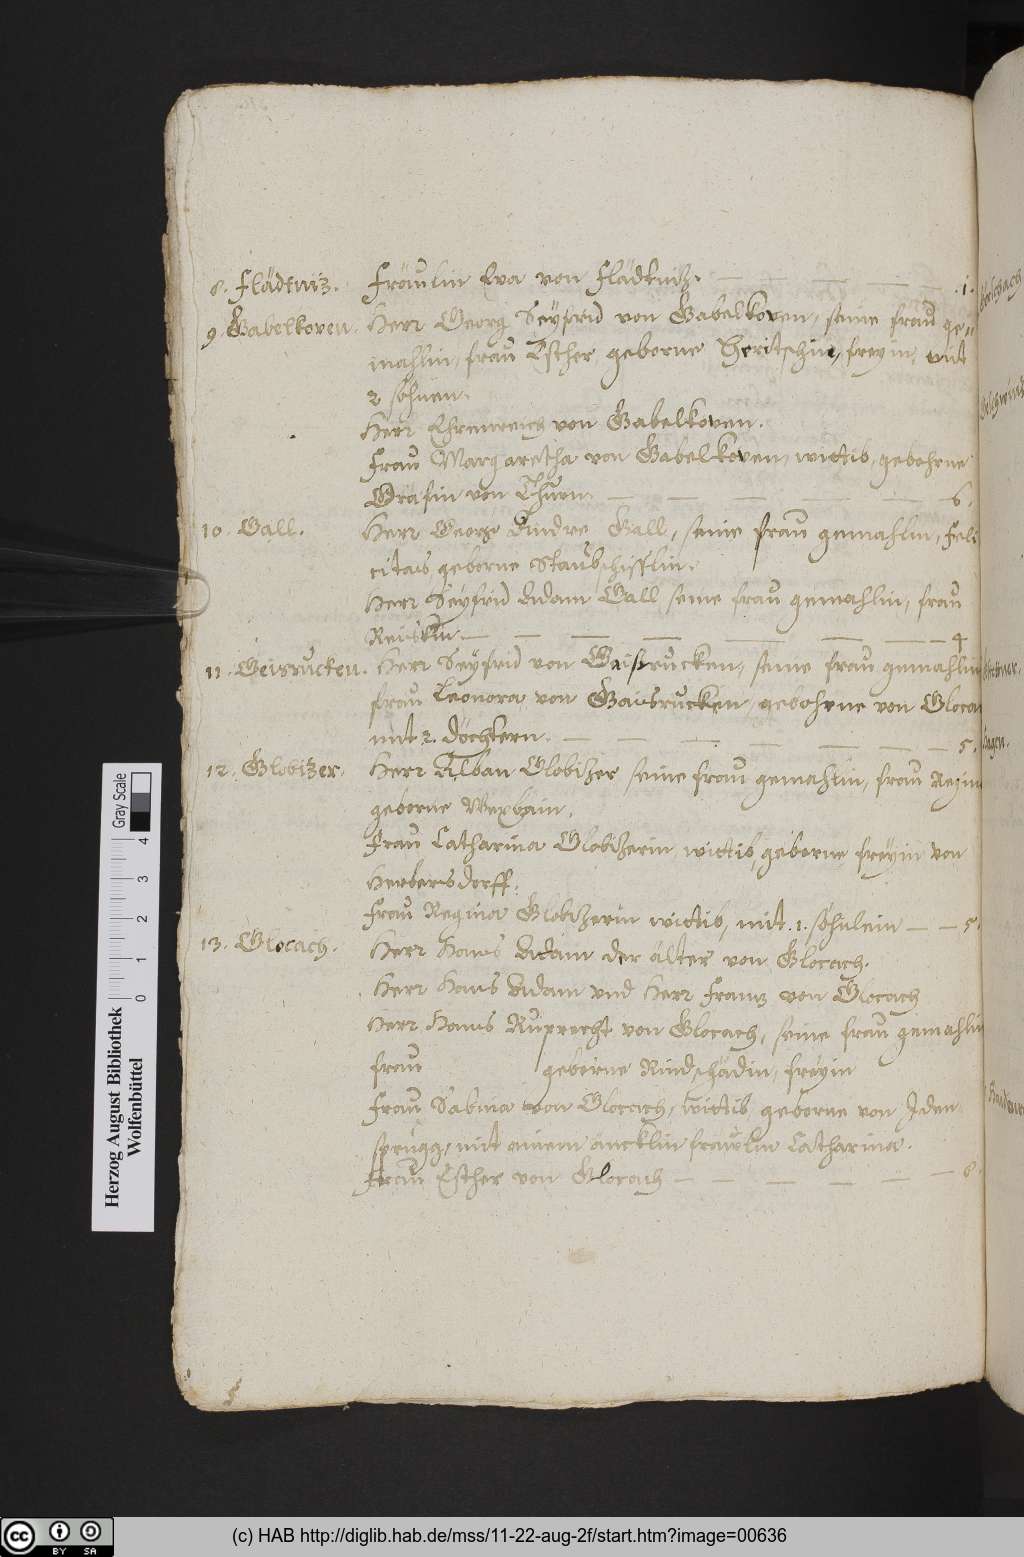 8. Flädtniz. Fräulin Eva von Flädtnitz. — — — — — 1.
9. Gabelkoven. Herr Georg Seyfrid von Gabelkoven, seine frau ge-
mahlin, frau Esther, geborne freyin, mit
2 söhnen.
Herr Ehrenreich von Gabelkoven.
Frau Margaretha von Gabelkoven, wittib, gebohrne
Gräfin von Thurn. — — — — — — 6.
10. Gall. Herr George Andre Gall, seine frau gemahlin, Feli
citas geborne Staudt
Herr Seyfrid Adam Gall seine frau gemahlin, frau
— — — — — — — 4
11. Geisrucken. Herr Seyfrid von Gaisrucken, seine frau gemahlin
frau Leonora von Gaisrucken, gebohrne von Gloca
mit 2. döchtern. — — — — — — — 5.
12. Globizer. Herr Alban Globizer seine frau gemahlin, frau Regin
geborne
Frau Catharina Globizerin wittib, geborne freyin von
Herbersdorff.
Frau Regina Globizerin wittib, mit .1. söhnlein — — 5.
13. Glocach. Herr Hans Adam der älter von Glocach.
Herr Hans Adam vnd Herr Franz von Glocach
Herr Hanns Ruprecht von Glocach, seine frau gemahlin
frau geborne Rindschädin, freyin
Frau Sabina von Glocach, wittib geborne von Iden
sprugg, mit ainem äncklin fräwlin Catharina.
Frau Esther von Glocach — — — — — — 8.
Herzog August Bibliothek
Wolfenbüttel
Gray Scale
0 1 2 3 4
cc BY SA
(c) HAB http://diglib.hab.de/mss/11-22-aug-2f/start.htm?image=00636